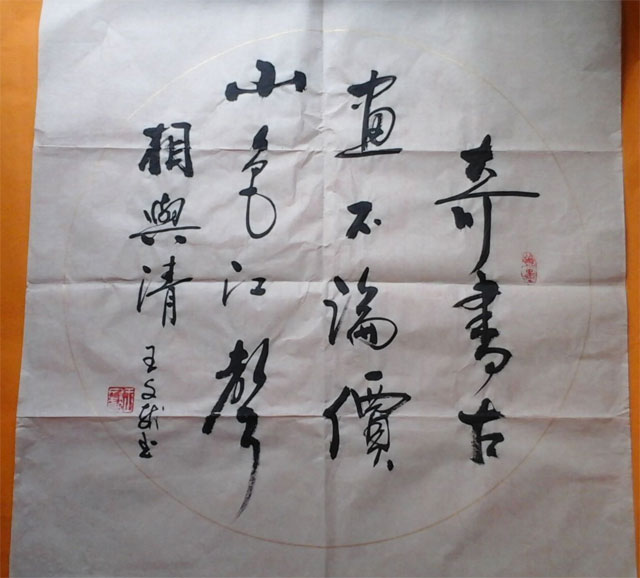 奇書古
畫不論價
山色江聲
相與清
王文书